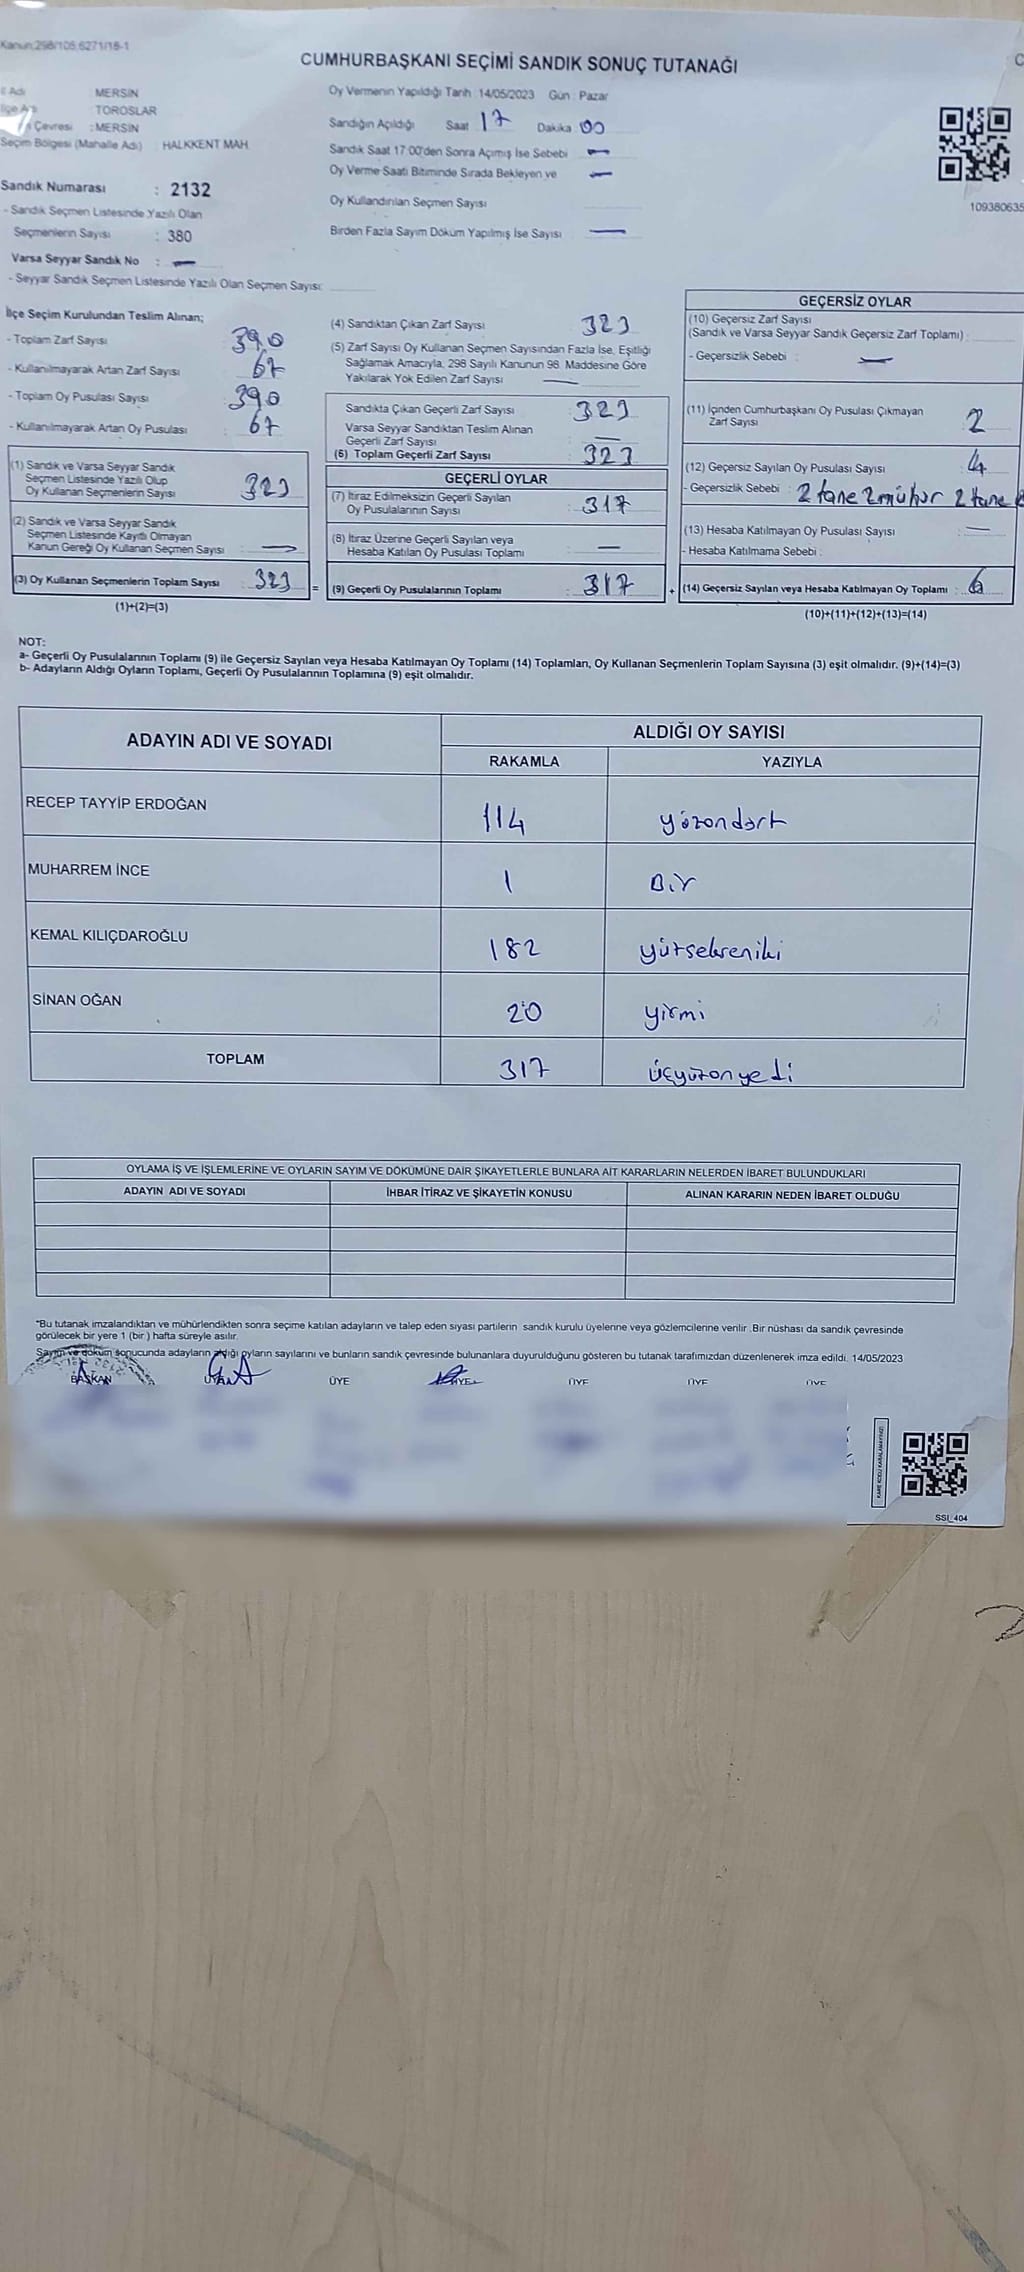 Kanun:298/105,6271/18-1
CUMHURBAŞKANI SEÇİMİ SANDIK SONUÇ TUTANAĞI
İl Adı MERSİN
İlçe Adı : TOROSLAR
Çevresi : MERSİN
Seçim Bölgesi (Mahalle Adı) : HALKKENT MAH.
Sandık Numarası : 2132
- Sandık Seçmen Listesinde Yazılı Olan
Seçmenlerin Sayısı : 380
Varsa Seyyar Sandık No : —
- Seyyar Sandık Seçmen Listesinde Yazılı Olan Seçmen Sayısı:
Oy Vermenin Yapıldığı Tarih : 14/05/2023 Gün : Pazar
Sandığın Açıldığı Saat 17 Dakika : 00
Sandık Saat 17:00'den Sonra Açımış İse Sebebi : —
Oy Verme Saati Bitiminde Sırada Bekleyen ve : —
Oy Kullandırılan Seçmen Sayısı
Birden Fazla Sayım Döküm Yapılmış İse Sayısı : —
109380635
İlçe Seçim Kurulundan Teslim Alınan;
- Toplam Zarf Sayısı : 390
- Kullanılmayarak Artan Zarf Sayısı : 67
- Toplam Oy Pusulası Sayısı : 390
- Kullanılmayarak Artan Oy Pusulası : 67
(1) Sandık ve Varsa Seyyar Sandık
Seçmen Listesinde Yazılı Olup
Oy Kullanan Seçmenlerin Sayısı : 323
(2) Sandık ve Varsa Seyyar Sandık
Seçmen Listesinde Kayıtlı Olmayan
Kanun Gereği Oy Kullanan Seçmen Sayısı : —
(3) Oy Kullanan Seçmenlerin Toplam Sayısı : 323
(1)+(2)=(3)
=
(4) Sandıktan Çıkan Zarf Sayısı : 323
(5) Zarf Sayısı Oy Kullanan Seçmen Sayısından Fazla İse, Eşitliği
Sağlamak Amacıyla, 298 Sayılı Kanunun 98. Maddesine Göre
Yakılarak Yok Edilen Zarf Sayısı : —
Sandıkta Çıkan Geçerli Zarf Sayısı : 323
Varsa Seyyar Sandıktan Teslim Alınan
Geçerli Zarf Sayısı : —
(6) Toplam Geçerli Zarf Sayısı : 323
GEÇERLİ OYLAR
(7) İtiraz Edilmeksizin Geçerli Sayılan
Oy Pusulalarının Sayısı : 317
(8) İtiraz Üzerine Geçerli Sayılan veya
Hesaba Katılan Oy Pusulası Toplamı : —
(9) Geçerli Oy Pusulalarının Toplamı : 317
+
GEÇERSİZ OYLAR
(10) Geçersiz Zarf Sayısı
(Sandık ve Varsa Seyyar Sandık Geçersiz Zarf Toplamı) :
- Geçersizlik Sebebi : —
(11) İçinden Cumhurbaşkanı Oy Pusulası Çıkmayan
Zarf Sayısı : 2
(12) Geçersiz Sayılan Oy Pusulası Sayısı : 4
- Geçersizlik Sebebi : 2 tane 2 mühür 2 tane
(13) Hesaba Katılmayan Oy Pusulası Sayısı : —
- Hesaba Katılmama Sebebi :
(14) Geçersiz Sayılan veya Hesaba Katılmayan Oy Toplamı : 6
(10)+(11)+(12)+(13)=(14)
NOT:
a- Geçerli Oy Pusulalarının Toplamı (9) ile Geçersiz Sayılan veya Hesaba Katılmayan Oy Toplamı (14) Toplamları, Oy Kullanan Seçmenlerin Toplam Sayısına (3) eşit olmalıdır. (9)+(14)=(3)
b- Adayların Aldığı Oyların Toplamı, Geçerli Oy Pusulalarının Toplamına (9) eşit olmalıdır.
ADAYIN ADI VE SOYADI ALDIĞI OY SAYISI
RAKAMLA YAZIYLA
RECEP TAYYİP ERDOĞAN 114 yüzondört
MUHARREM İNCE 1 Bir
KEMAL KILIÇDAROĞLU 182 yüzsekseniki
SİNAN OĞAN 20 yirmi
TOPLAM 317 üçyüzonyedi
OYLAMA İŞ VE İŞLEMLERİNE VE OYLARIN SAYIM VE DÖKÜMÜNE DAİR ŞİKAYETLERLE BUNLARA AİT KARARLARIN NELERDEN İBARET BULUNDUKLARI
ADAYIN ADI VE SOYADI İHBAR İTİRAZ VE ŞİKAYETİN KONUSU ALINAN KARARIN NEDEN İBARET OLDUĞU
*Bu tutanak imzalandıktan ve mühürlendikten sonra seçime katılan adayların ve talep eden siyasi partilerin sandık kurulu üyelerine veya gözlemcilerine verilir. Bir nüshası da sandık çevresinde
görülecek bir yere 1 (bir ) hafta süreyle asılır.
Sayım ve döküm sonucunda adayların aldığı oyların sayılarını ve bunların sandık çevresinde bulunanlara duyurulduğunu gösteren bu tutanak tarafımızdan düzenlenerek imza edildi. 14/05/2023
BAŞKAN ÜYE ÜYE ÜYE ÜYE ÜYE
SSI_404